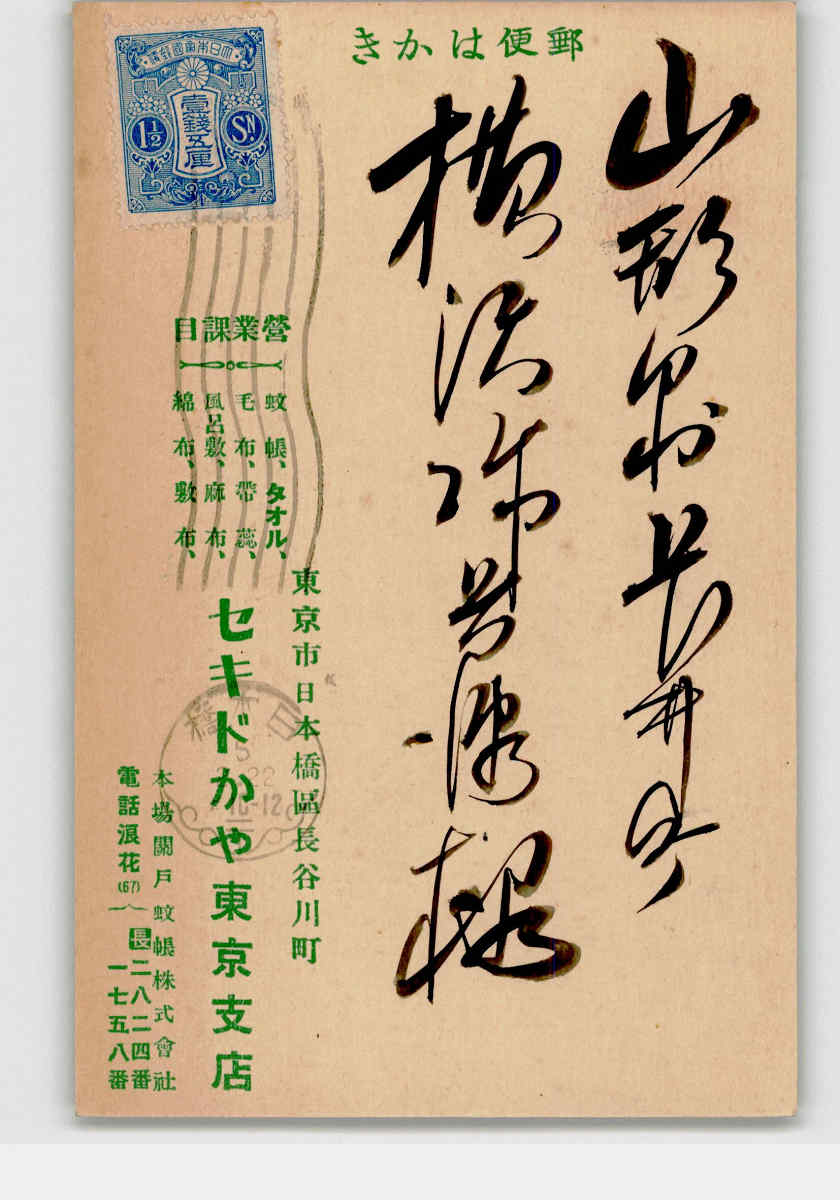 郵便はかき
大日本帝國郵便
壹錢五厘
1½ Sn
山形縣長井町
横
様
營業課目
蚊帳、タオル、
毛布、帶蕊、
風呂敷、麻布、
綿布、敷布、
東京市日本橋區長谷川町
セキドかや東京支店
本場關戸蚊帳株式會社
電話浪花(67)
長二八二四番
一七五八番
日本橋
5
22
10-12